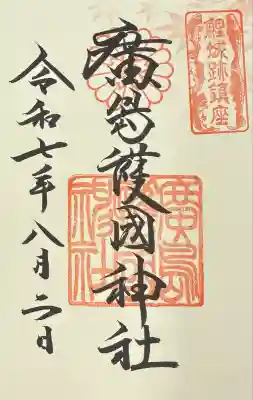 鯉城跡鎮座
廣島護國神社
廣島護國神社
令和七年八月六日